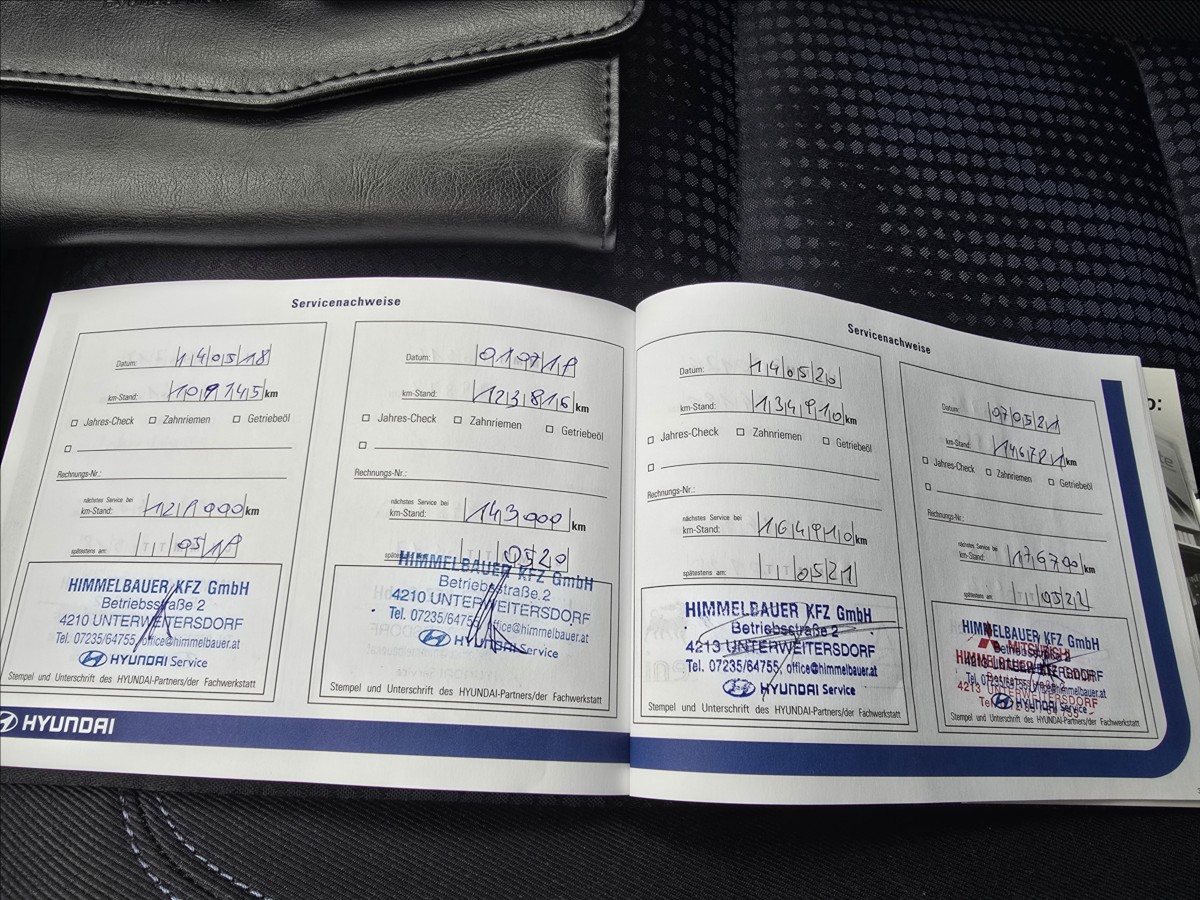 Servicenachweise
Datum: 14 05 18
km-Stand: 109145 km
Jahres-Check Zahnriemen Getriebeöl
Rechnungs-Nr.:
nächstes Service bei
km-Stand: km
spätestens am: 05 19
HIMMELBAUER KFZ GmbH
Betriebsstraße 2
4210 UNTERWEITERSDORF
Tel. 07235/64755, office@himmelbauer.at
HYUNDAI Service
Stempel und Unterschrift des HYUNDAI-Partners/der Fachwerkstatt
Datum: 01 07 19
km-Stand: 123816 km
Jahres-Check Zahnriemen Getriebeöl
Rechnungs-Nr.:
nächstes Service bei
km-Stand: 143000 km
spätestens am: 05 20
HIMMELBAUER KFZ GmbH
Betriebsstraße 2
4210 UNTERWEITERSDORF
Tel. 07235/64755, office@himmelbauer.at
HYUNDAI Service
Stempel und Unterschrift des HYUNDAI-Partners/der Fachwerkstatt
HYUNDAI
Servicenachweise
Datum: 14 05 20
km-Stand: 134910 km
Jahres-Check Zahnriemen Getriebeöl
Rechnungs-Nr.:
nächstes Service bei
km-Stand: 164910 km
spätestens am: 05 21
HIMMELBAUER KFZ GmbH
Betriebsstraße 2
4213 UNTERWEITERSDORF
Tel. 07235/64755, office@himmelbauer.at
HYUNDAI Service
Stempel und Unterschrift des HYUNDAI-Partners/der Fachwerkstatt
Datum: 07 05 21
km-Stand: 146721 km
Jahres-Check Zahnriemen Getriebeöl
Rechnungs-Nr.:
nächstes Service bei
km-Stand: 176700 km
spätestens am: 05 22
HIMMELBAUER KFZ GmbH
MITSUBISHI
4213 UNTERWEITERSDORF
HYUNDAI Service
Stempel und Unterschrift des HYUNDAI-Partners/der Fachwerkstatt